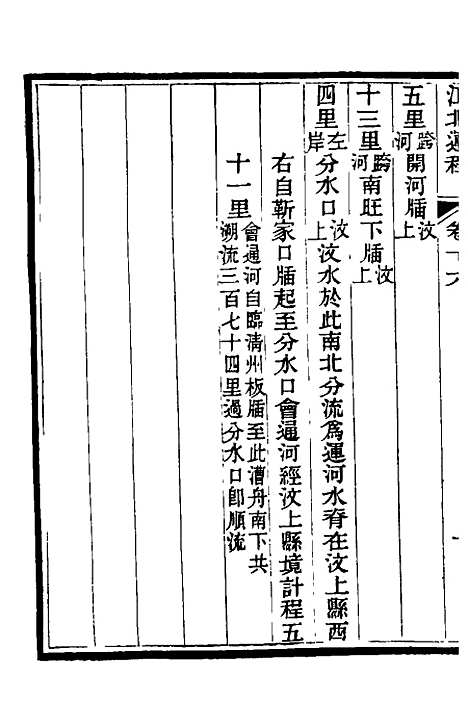 江北運程 卷十六
五里跨河開河牐汶上
十三里跨河南旺下牐汶上
四里左岸分水口汶上汶水於此南北分流爲運河水脊在汶上縣西
右自靳家口牐起至分水口會通河經汶上縣境計程五
十一里會通河自臨清州板牐至此漕舟南下共
溯流三百七十四里過分水口卽順流